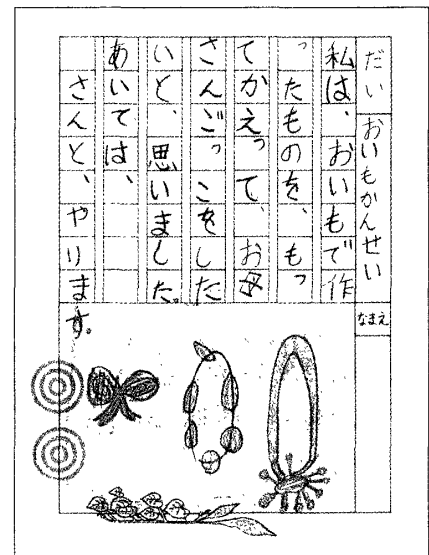 だい おいもかんせい
なまえ
私は、おいもで作
ったものを、もっ
てかえって、お母
さんごっこをした
いと、思いました。
あいては、
さんと、やります。